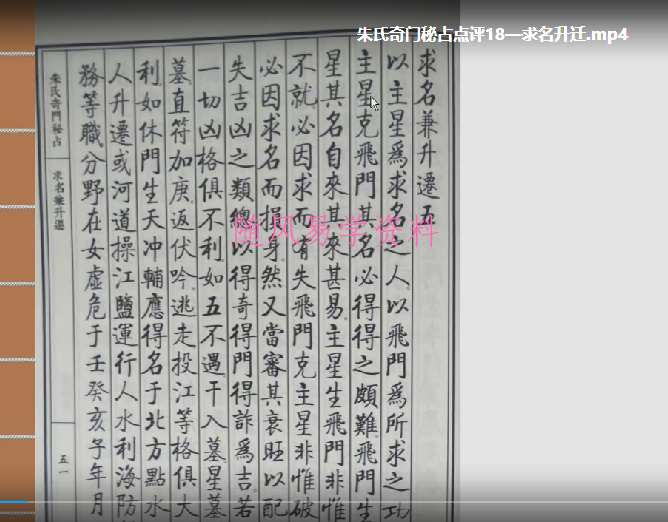 朱氏奇门秘占点评18—求名升迁.mp4
求名兼升遷五
以主星爲求名之人以飛門爲所求之功
主星克飛門其名必得得之頗難飛門生
星其名自來其來甚易主星生飛門非惟
不就必因求而有失飛門克主星非惟破
必因求名而損身然又當審其衰旺以配
失吉凶之類總以得奇得門得詐爲吉若
一切凶格俱不利如五不遇干入墓星墓
墓直符加庚返伏吟逃走投江等格俱大
利如休門生天冲輔應得名于北方點水
人升遷或河道操江鹽運行人水利海防
務等職分野在女虛危于壬癸亥子年月
朱氏奇門秘占
求名兼升遷
五一
随风易学资料